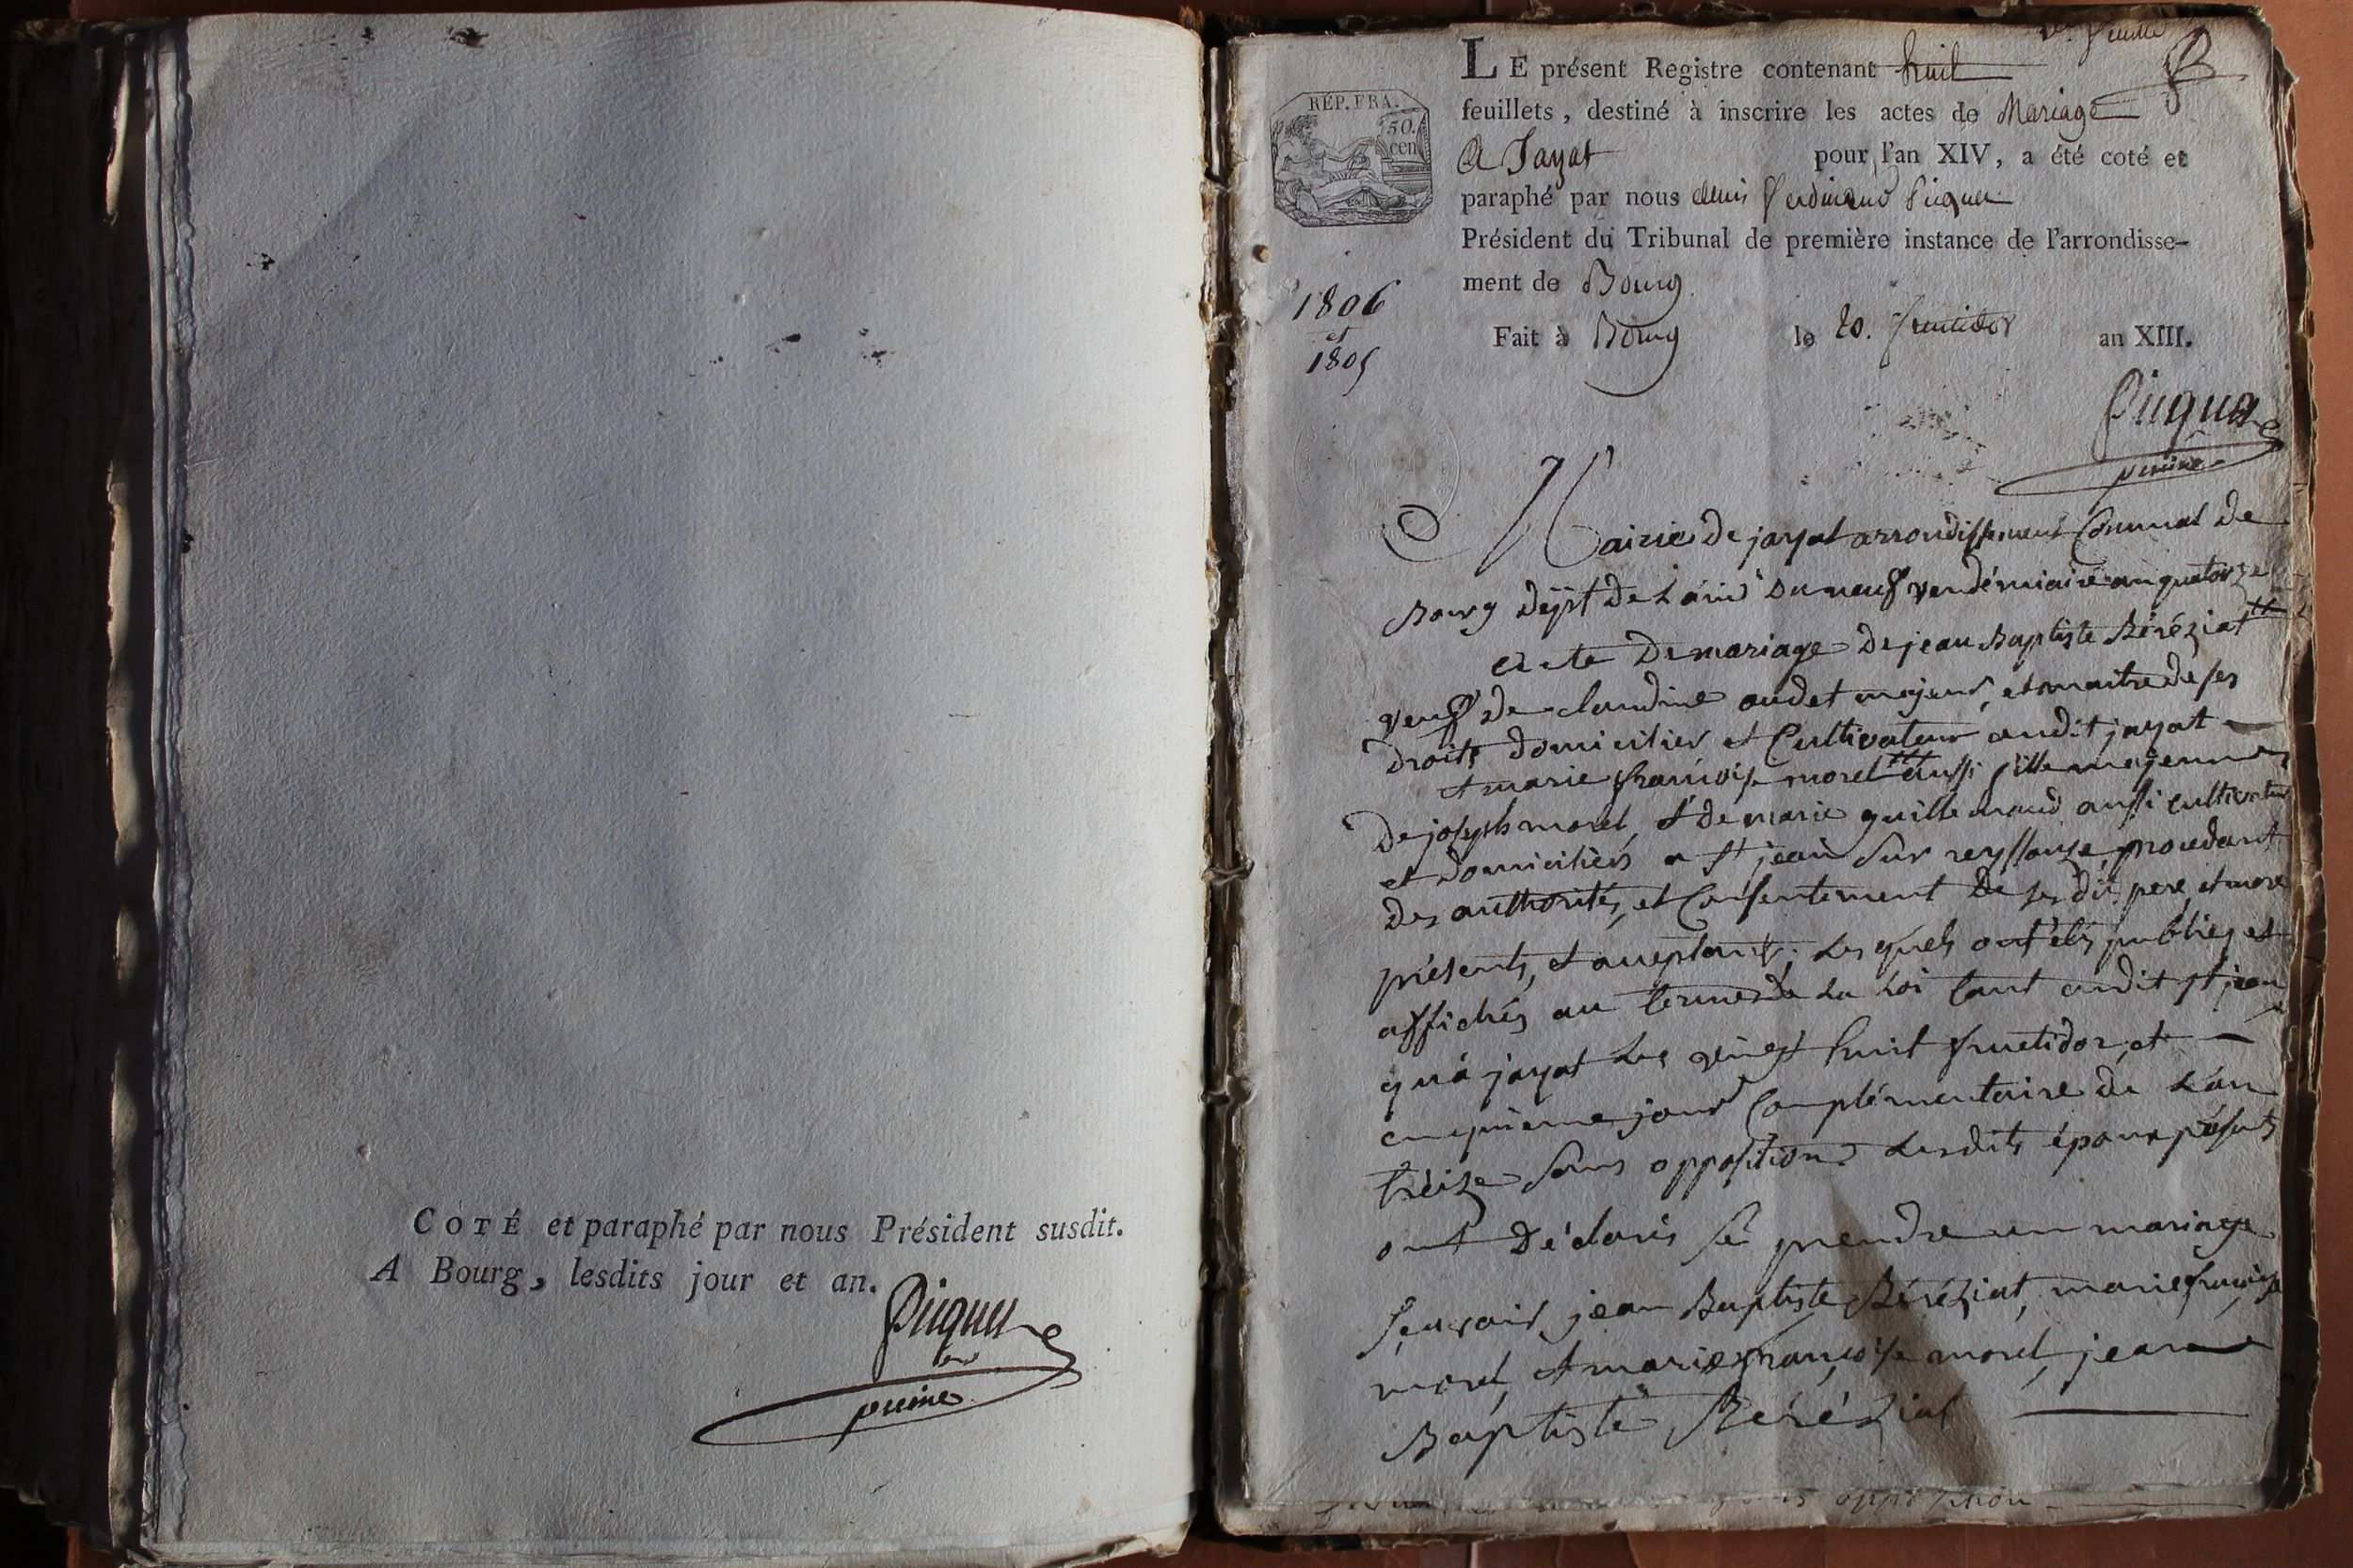 COTÉ et paraphé par nous Président susdit.
A Bourg, lesdits jour et an.
Picquet
1er feuillet
LE présent Registre contenant huit
feuillets, destiné à inscrire les actes de Mariage
RÉP. FRA.
50.
cen
A Jayat pour l'an XIV, a été coté et
paraphé par nous denis ferdinand Picquet
Président du Tribunal de première instance de l'arrondisse-
ment de Bourg
1806
et
1805
Fait à Bourg le 20. fructidor an XIII.
Picquet
Mairie de jayat arrondissement Communal de
Bourg dept de L'ain Du neuf vendémiaire an quatorze
Acte De mariage De jean Baptiste Béréziat
veuf de claudine oudet majeur, et maitre de ses
Droits domicilier et Cultivateur audit jayat
et marie françoise morel aussi fille majeure
De joseph morel, et de marie guillemaud aussi cultivateur
et domiciliés a st jean sur reyssouze, procedant
des authorités, et Consentement de ses dit pere, et mere
présents, et aceptant; Les quels ont étés publiés et
affichés au termes de La Loi tant audit st jean
qu'à jayat Les vingt huit fructidor, et
cinquieme jour Complémentaire de L'an
tréize sans opposition Lesdits époux présents
ont Déclarés se prendre en mariage
scavoir jean Baptiste Béréziat, marie françoise
morel, et marie françoise morel, jean
Baptiste Béréziat
sans opposition